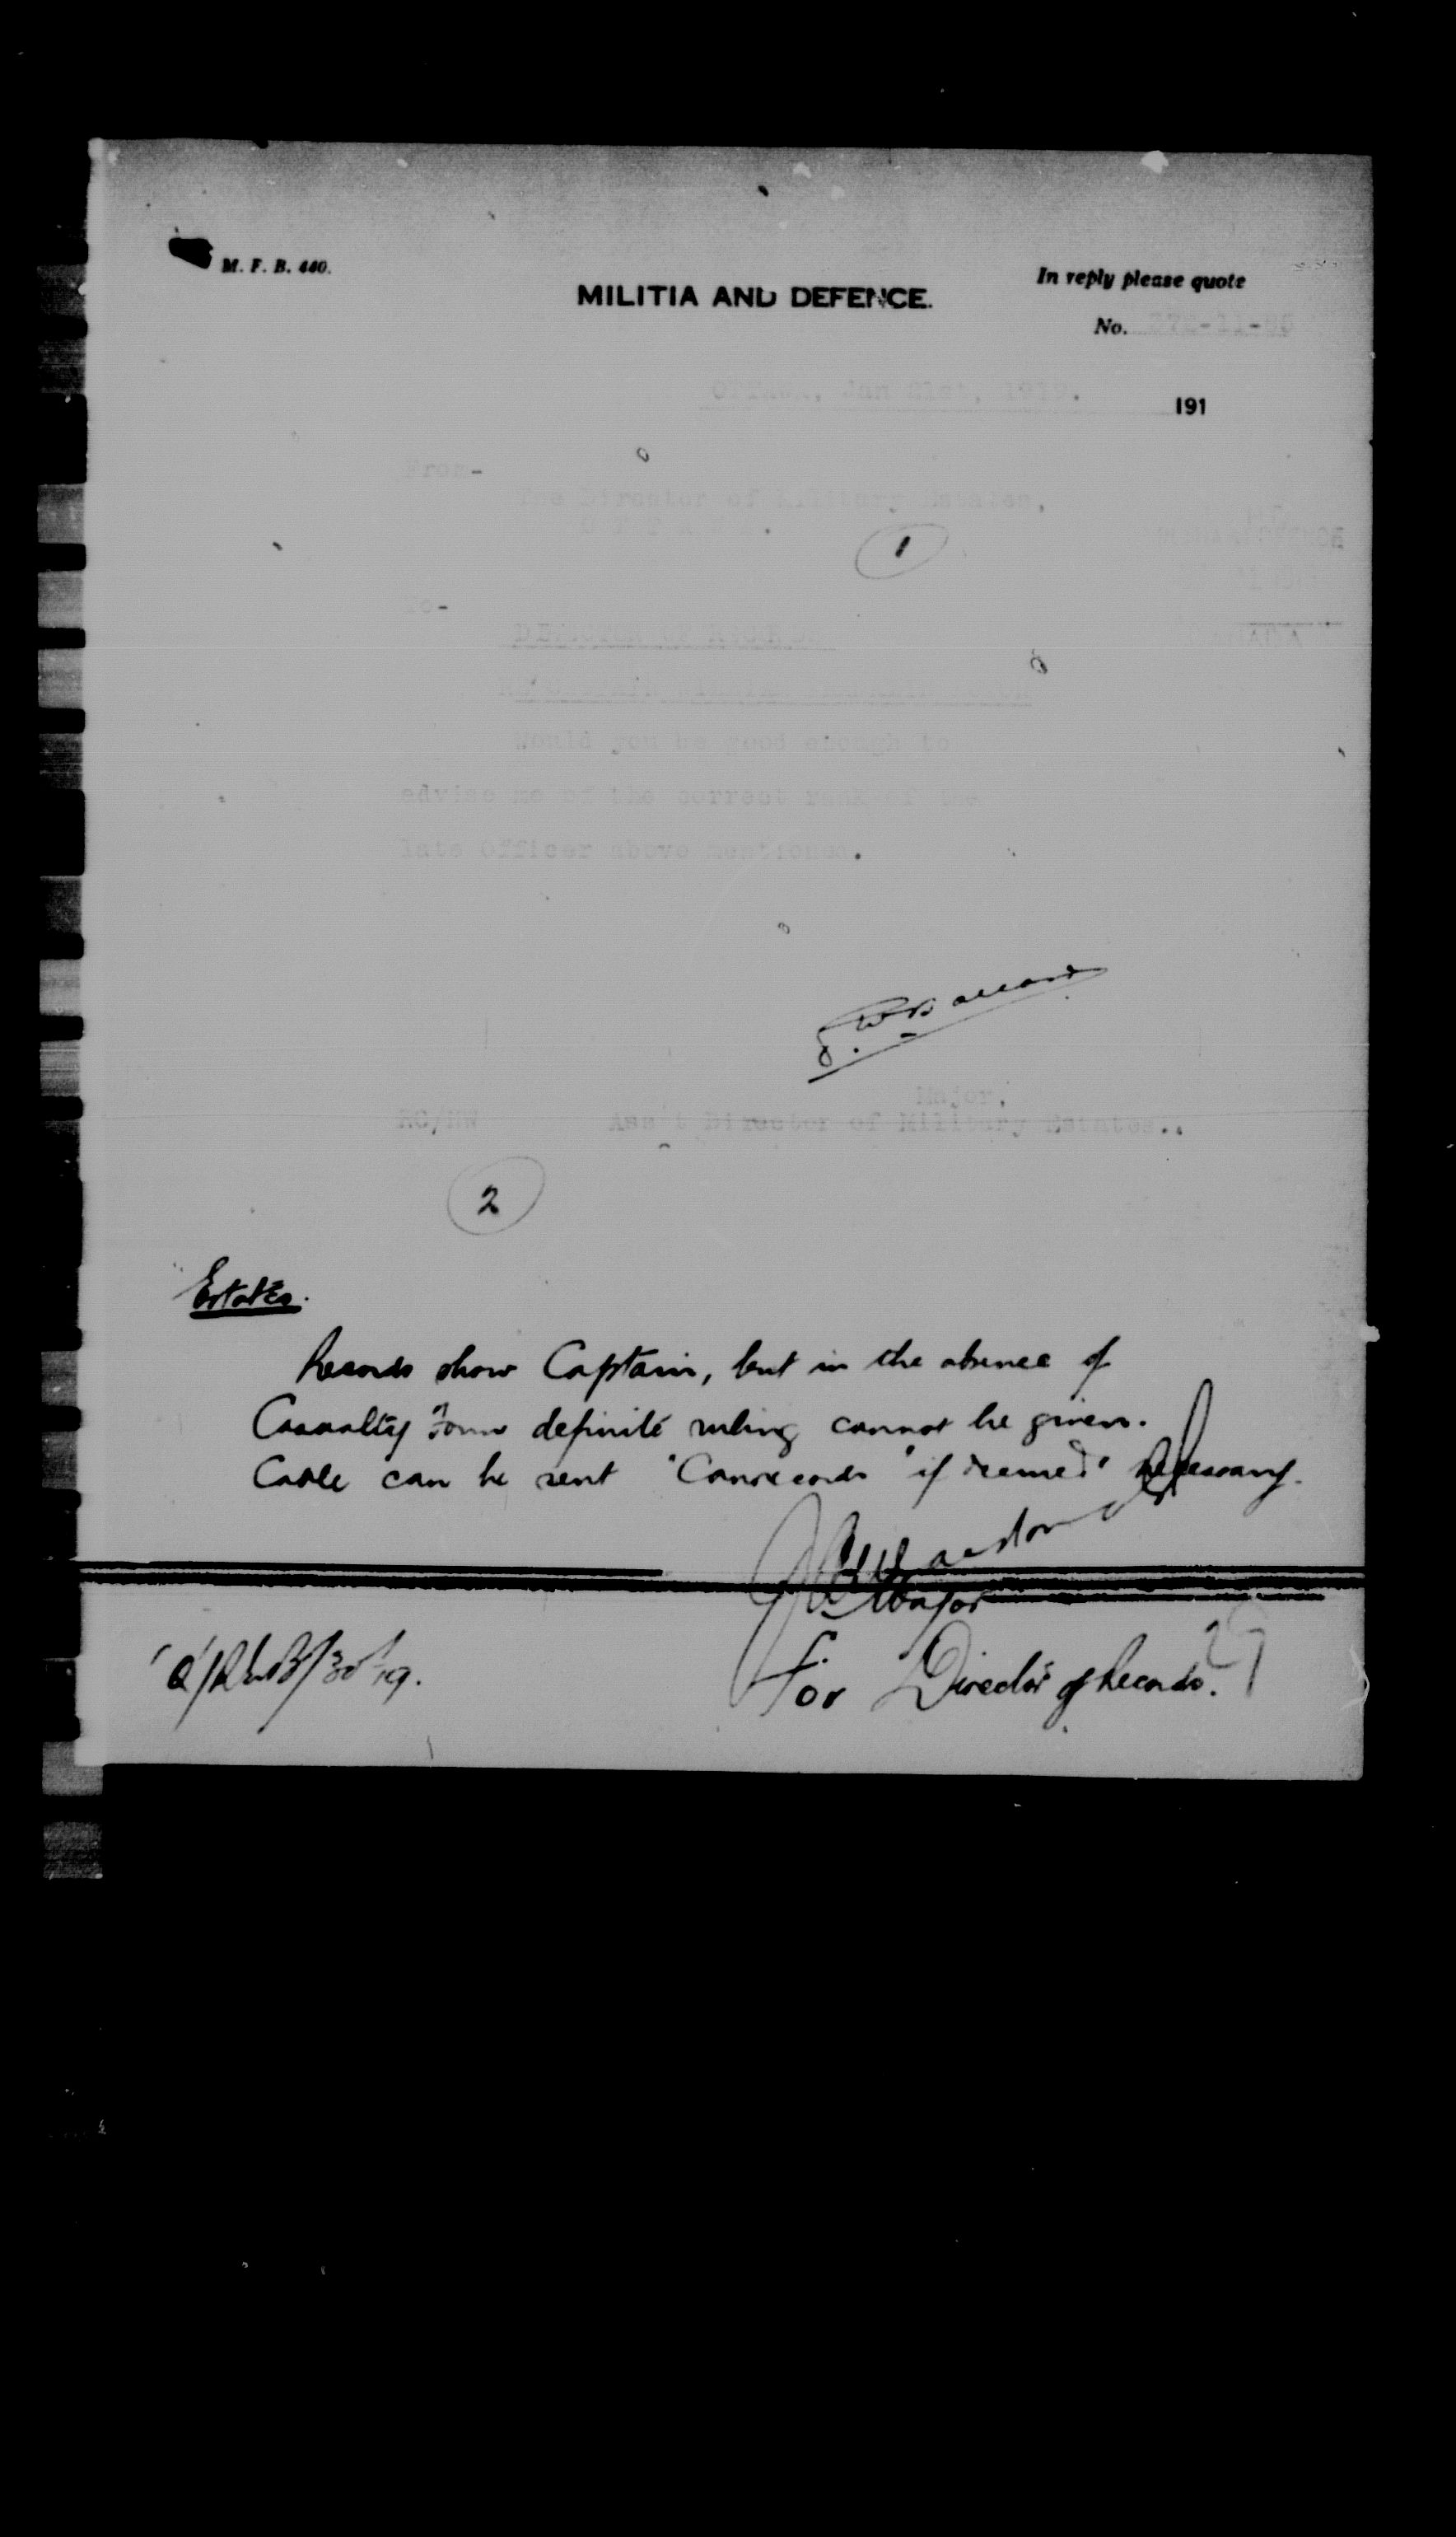 M. F. B. 440.
MILITIA AND DEFENCE.
In reply please quote
No.
Ottawa, Jan 21st, 1919.
191
From-
The Director of Military Estates,
1
To-
DIRECTOR OF RECORDS
Would you be good enough to
advise me of the correct rank of the
late Officer above mentioned.
Major,
Ass't Director of Military Estates..
2
Estates.
Records show Captain, but in the absence of
Casualty Form definite ruling cannot be given.
Cable can be sent "Canrecords" if deemed necessary.
Major
for Director of Records.
29